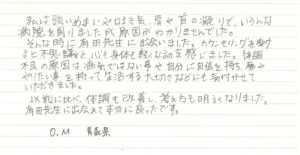 私は強いめまいや吐き気、肩や首の凝りで、いろんな
病院を回りましたが原因がわかりませんでした。
そんな時に有田先生に出会いました。カウンセリングを受け
ると不思議と心も身体も軽くなるのを感じました。体調
不良の原因は病気ではない事や自分に自信を持ち、夢や
やりたい事を持って生活する大切さなどにも気付かせて
いただきました。
以前に比べ、体調も改善し、考え方も明るくなりました。
有田先生に出会えて本当に良かったです。
O.M 青森県